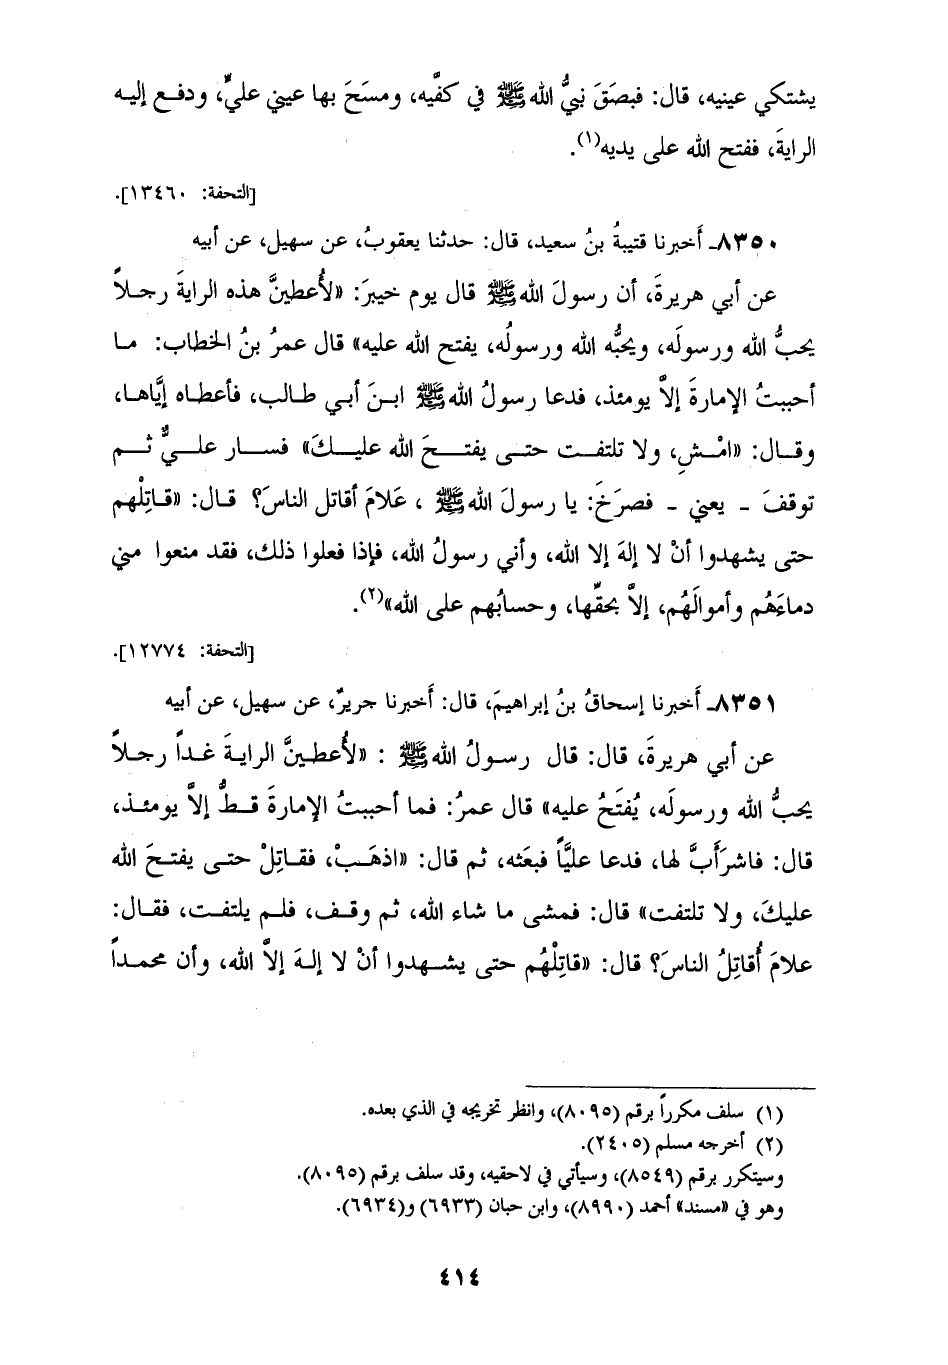 يشتكي عينيه، قال: فبصَقَ نبيُّ الله ﷺ في كفَّيه، ومسَحَ بها عيني عليٍّ، ودفع إليه
الرايةَ، ففتح الله على يديه(١).
[التحفة: ١٣٤٦٠].
٨٣٥٠ـ أَخبرنا قتيبةُ بنُ سعيد، قال: حدثنا يعقوبُ، عن سهيل، عن أبيه
عن أبي هريرةَ، أن رسولَ الله ﷺ قال يوم خيبرَ: «لأُعطينَّ هذه الرايةَ رجلاً
يحبُّ الله ورسولَه، ويحبُّه الله ورسولُه، يفتح الله عليه» قال عمرُ بنُ الخطاب: ما
أحببتُ الإمارةَ إلاَّ يومئذ، فدعا رسولُ الله ﷺ ابنَ أبي طالب، فأعطاه إيَّاها،
وقال: «امْشِ، ولا تلتفت حتى يفتحَ الله عليكَ» فسار عليٌّ ثم
توقفَ - يعني - فصرَخَ: يا رسولَ الله ﷺ ، عَلامَ أقاتل الناسَ؟ قال: «قاتِلْهم
حتى يشهدوا أنْ لا إلهَ إلا الله، وأني رسولُ الله، فإذا فعلوا ذلك، فقد منعوا مني
دماءَهُم وأموالَهُم، إلاَّ بحقِّها، وحسابُهم على الله»(٢).
[التحفة: ١٢٧٧٤].
٨٣٥١ـ أَخبرنا إسحاقُ بنُ إبراهيمَ، قال: أَخبرنا جريرٌ، عن سهيل، عن أبيه
عن أبي هريرةَ، قال: قال رسولُ الله ﷺ : «لأُعطينَّ الرايةَ غداً رجلاً
يحبُّ الله ورسولَه، يُفتَحُ عليه» قال عمرُ: فما أحببتُ الإمارةَ قطُّ إلاَّ يومئذ،
قال: فاشرَأَبَّ لها، فدعا عليَّاً فبعَثه، ثم قال: «اذهَبْ، فقاتِلْ حتى يفتحَ الله
عليكَ، ولا تلتفت» قال: فمشى ما شاء الله، ثم وقف، فلم يلتفت، فقال:
علامَ أُقاتِلُ الناسَ؟ قال: «قاتِلْهُم حتى يشهدوا أنْ لا إلهَ إلاَّ الله، وأن محمداً
(١) سلف مكرراً برقم (٨٠٩٥)، وانظر تخريجه في الذي بعده.
(٢) أخرجه مسلم (٢٤٠٥).
وسيتكرر برقم (٨٥٤٩)، وسيأتي في لاحقيه، وقد سلف برقم (٨٠٩٥).
وهو في «مسند» أحمد (٨٩٩٠)، وابن حبان (٦٩٣٣) و(٦٩٣٤).
٤١٤